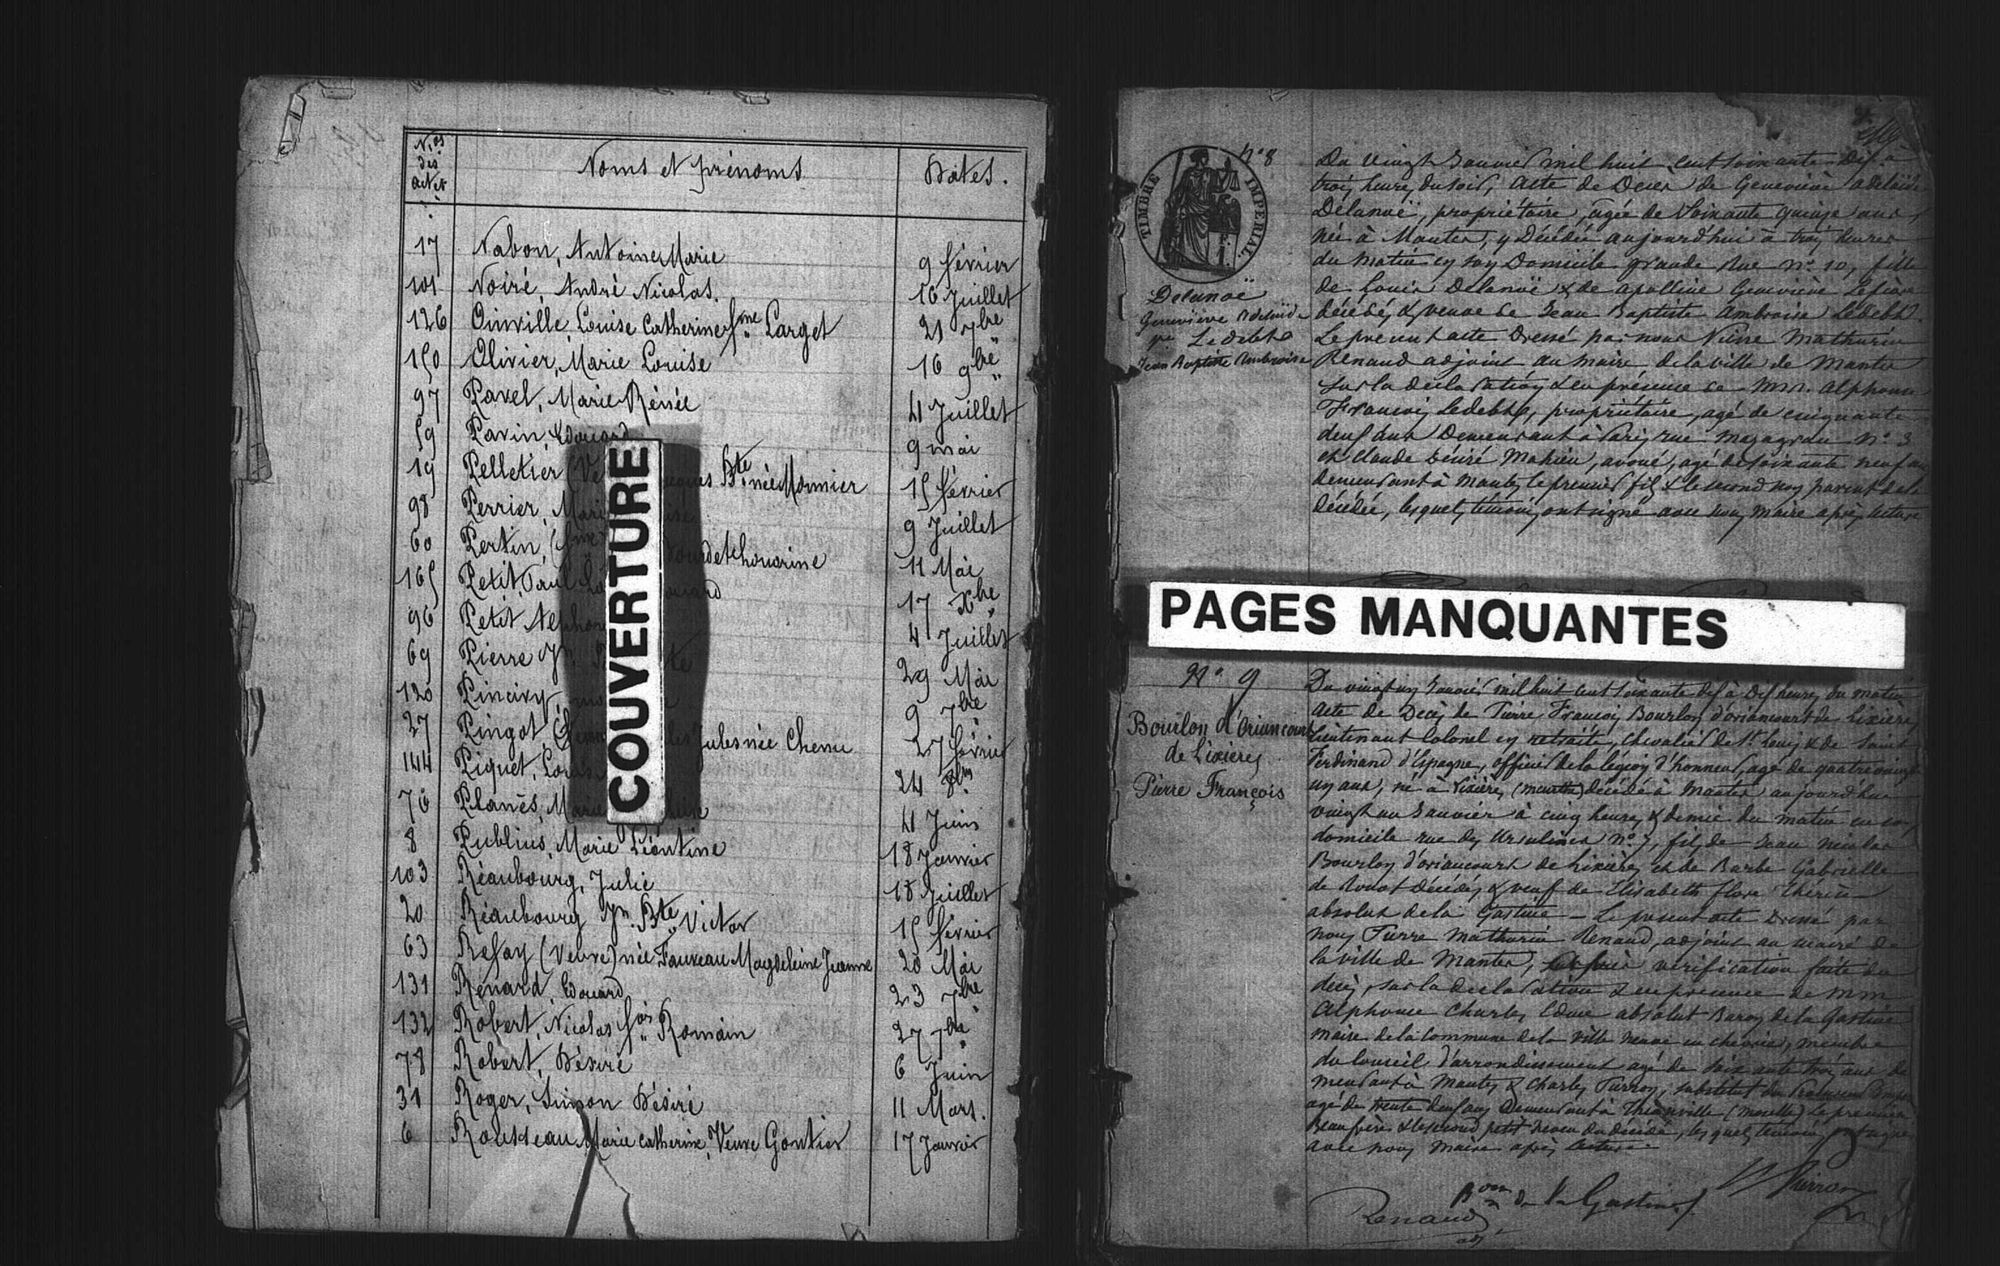 N.os des actes
Noms et prénoms
Dates.
17 Nabon, Antoine Marie 9 février
101 Noiré, André Nicolas. 16 Juillet
126 Oinville, Louise Catherine fme Larget 21 7bre
150 Olivier, Marie Louise 16 9bre
97 Pavel, Marie Rénée 4 Juillet
59 Pavin, Edouard 9 mai
19 Pelletier Bte née Monnier 15 février
98 Perrier, 9 Juillet
60 Pertin, 11 Mai
165 Petit, Paul 17 Xbre
96 Petit, 4 Juillet
69 Pierre 29 Mai
120 9 7bre
27 Pingot, Jules née Chenu 27 février
144 Piquet, Louis 24 8bre
76 Planès, Marie 4 Juin
8 Publius, Marie Léontine 18 Janvier
103 Réaubourg, Julie 18 Juillet
20 Réaubourg Jn. Bte Victor 15 février
63 Refay (Veuve) née Fauveau Magdeleine Jeanne 20 Mai
131 Renard, Edouard 23 7bre
132 Robert, Nicolas fois Romain 27 7bre
78 Robert, Désiré 6 Juin
31 Roger, Simon Désiré 11 Mars.
6 Rousseau Marie Catherine, Veuve Gontier 17 Janvier
COUVERTURE
TIMBRE IMPERIAL.
N° 8
Delanoë
Geneviève Adelaïde
ve Ledebte
Jean Baptiste Ambroise
Du vingt Janvier mil huit cent soixante-dix à
trois heures du soir, Acte de Décès de Geneviève Adelaïde
Délanoë, propriétaire, agée de soixante quinze ans,
née à Mantes, y Décédée aujourd'hui à trois heures
du matin en son Domicile grande Rue n° 10, fille
de Louis Delanoë & de Apolline Geneviève
décédés, & veuve de Jean Baptiste Ambroise Ledebte.
Le présent acte Dressé par nous Pierre Mathurin
Renaud adjoint au maire de la ville de Mantes
sur la déclaration & en présence de MM. Alphonse
François Ledebte, propriétaire, agé de cinquante
deux ans Demeurant à Paris rue Mazagran n° 3
et Claude Désiré Mahieu, avoué, agé de soixante neuf ans
demeurant à Mantes le premier fils & le second non parent de la
décédée, lesquels témoins ont signé avec nous Maire après lecture
PAGES MANQUANTES
N° 9
Bourlon d'Oriancourt
de Lixières
Pierre François
Du vingt un Janvier mil huit cent soixante dix à dix heures du matin
Acte de Décès de Pierre François Bourlon d'oriancourt de Lixières
Lieutenant Colonel en retraite, Chevalier de St Louis & de Saint
Ferdinand d'Espagne, officier de la légion d'honneur, agé de quatrevingt
un ans, né à Lixières (Meurthe) décédé à Mantes aujourd'hui
vingt un Janvier à cinq heures & demie du matin en son
domicile rue des Ursulines n° 7, fils de Jean Nicolas
Bourlon d'oriancourt de Lixières et de Barbe Gabrielle
de décédés & veuf de Elisabeth Flore Thérèse
absolut de la Gastine – Le présent acte Dressé par
nous Pierre Mathurin Renaud, adjoint au maire de
la ville de Mantes, vérification faite du
décès, sur la déclaration & en présence de MM
Alphonse Charles Edme absolut Baron de la Gastine
maire de la commune de la Ville neuve en chevrie, membre
du Conseil d'arrondissement agé de soixante trois ans de
meurant à Mantes & Charles Purnon, substitut du Procureur Impérial
agé de trente deux ans Demeurant à Thionville (Moselle) Le premier
Beau frère & le second petit neveu du décédé, lesquels témoins ont signé
avec nous Maire après lecture
Bon de la Gastine
Renaud
adj